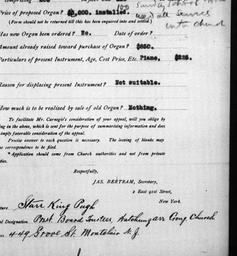 Price of proposed Organ? $2,000, installed.
(Form should not be returned till this has been enquired into and settled.)
Has new Organ been ordered? No. Date of order?
Amount already raised toward purchase of Organ? $650.
Particulars of present Instrument, Age, Cost Price, Etc. Piano, $225.
Reason for displacing present Instrument? Not suitable.
How much is to be realized by sale of old Organ? Nothing.
To facilitate Mr. Carnegie's consideration of your appeal, will you oblige by
filling up the above, which is sent for the purpose of summarizing information and does
not imply favorable consideration of the appeal.
Precise answer to each question is necessary. The leaving of blanks may
cause no correspondence to be filed.
* Application should come from Church authorities and not from private
parties.
Respectfully,
JAS. BERTRAM, Secretary,
2 East 91st Street,
New York.
Starr King Pugh
Pres. Board Trustees Watchung Ave Cong. Church
449 Grove St. Montclair N.J.